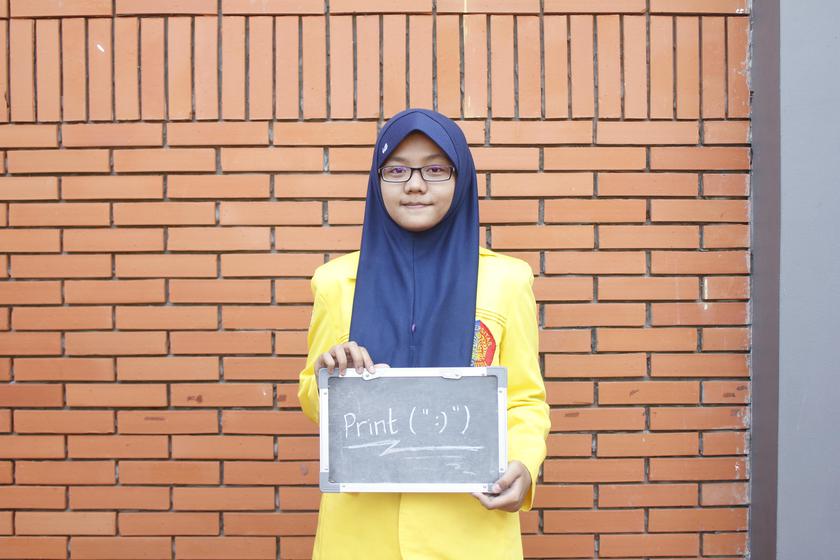 Print (":)")